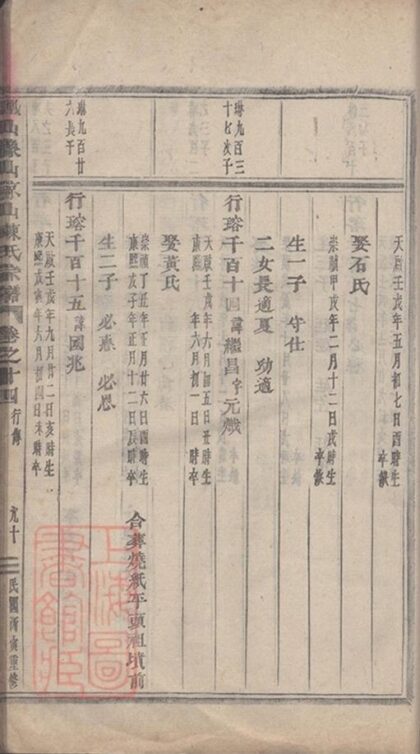 天啟壬戌年五月初七日酉時生
卒缺
娶石氏
崇禎甲戌年二月十二日戌時生
卒缺
生一子 守仕
二女長適夏 幼適
琳九百三
十七次子
行瑢千百十四諱繼昌字元熾
天啟壬戌年六月初五日丑時生
康熙 年六月初一日 時卒
娶黃氏
崇禎丁丑年正月廿六日酉時生
康熙 子年正月十二日辰時卒
合葬燒紙平頭祖墳前
生二子 必泰 必恩
琳九百廿
六長子
行瑢千百十五諱國兆
天啟壬戌年九月廿二日亥時生
康熙戊寅年六月初四日未時卒
山陳氏宗譜
卷之十四
行傳
九十
民國 寅重修
上海圖書館藏